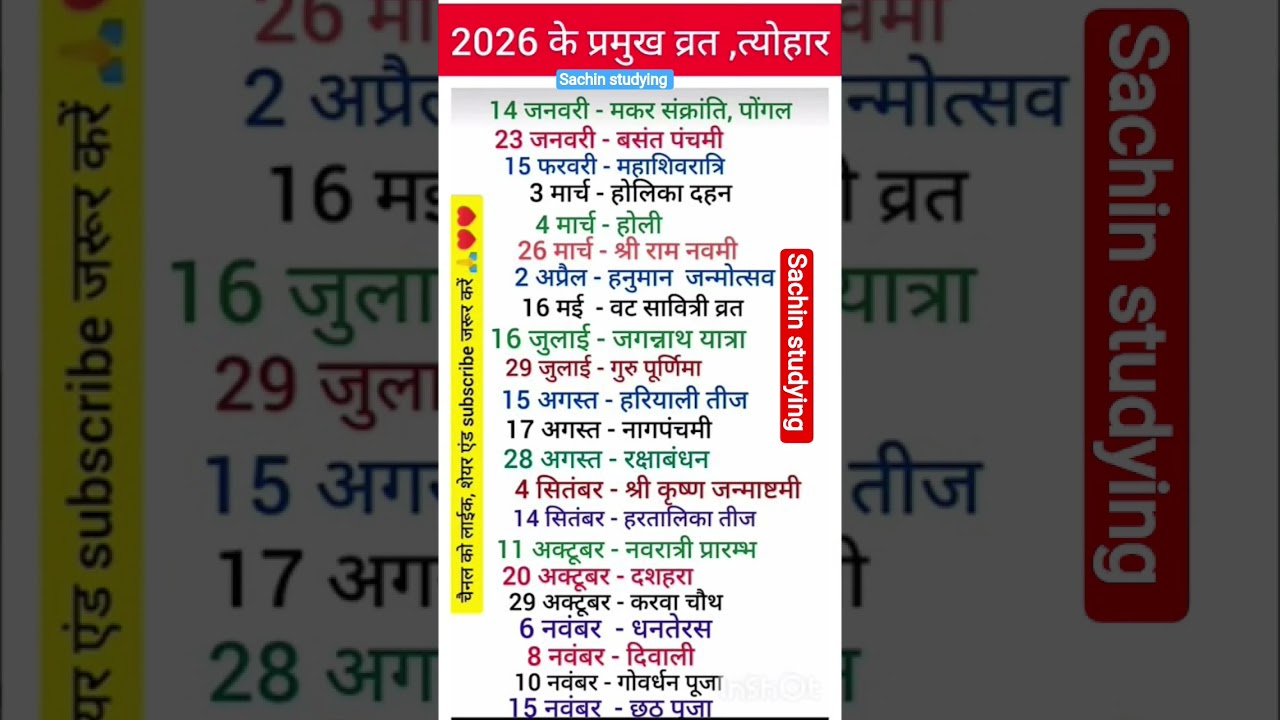 2026 के प्रमुख व्रत ,त्योहार
Sachin studying
14 जनवरी - मकर संक्रांति, पोंगल
23 जनवरी - बसंत पंचमी
15 फरवरी - महाशिवरात्रि
3 मार्च - होलिका दहन
4 मार्च - होली
26 मार्च - श्री राम नवमी
2 अप्रैल - हनुमान जन्मोत्सव
16 मई - वट सावित्री व्रत
16 जुलाई - जगन्नाथ यात्रा
29 जुलाई - गुरु पूर्णिमा
15 अगस्त - हरियाली तीज
17 अगस्त - नागपंचमी
28 अगस्त - रक्षाबंधन
4 सितंबर - श्री कृष्ण जन्माष्टमी
14 सितंबर - हरतालिका तीज
11 अक्टूबर - नवरात्री प्रारम्भ
20 अक्टूबर - दशहरा
29 अक्टूबर - करवा चौथ
6 नवंबर - धनतेरस
8 नवंबर - दिवाली
10 नवंबर - गोवर्धन पूजा
15 नवंबर - छठ पूजा
InShOt
चैनल को लाईक, शेयर एंड subscribe जरूर करें 🙏❤️❤️
Sachin studying
यर एंड subscribe जरूर करें 🙏
26 मा
2 अप्रैल
16 मई
16 जुला
29 जुला
15 अग
17 अग
28 अग
वमी
न्मोत्सव
व्रत
यात्रा
तीज
Sachin studying